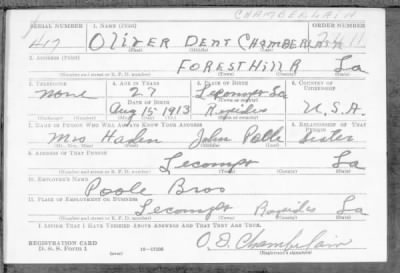 CHAMBERLAIN
SERIAL NUMBER 1. NAME (Print) ORDER NUMBER
417 OliVER DENT CHAMBERLAIN
(First) (Middle) (Last)
2. ADDRESS (Print)
FOREST HILL R La
(Number and street or R. F. D. number) (Town) (County) (State)
3. TELEPHONE 4. AGE IN YEARS 5. PLACE OF BIRTH 6. COUNTRY OF CITIZENSHIP
None 27 Lecompte La
DATE OF BIRTH
Aug 15 1913 Rapides U.S.A.
7. NAME OF PERSON WHO WILL ALWAYS KNOW YOUR ADDRESS 8. RELATIONSHIP OF THAT PERSON
Mrs Haden John Sister
(Mr., Mrs., Miss) (First) (Middle) (Last)
9. ADDRESS OF THAT PERSON
Lecompt La
(Number and street or R. F. D. number) (Town) (County) (State)
10. EMPLOYER'S NAME
Poole Bros
11. PLACE OF EMPLOYMENT OR BUSINESS
Lecompte Rapides La
(Number and street or R. F. D. number) (Town) (County) (State)
I AFFIRM THAT I HAVE VERIFIED ABOVE ANSWERS AND THAT THEY ARE TRUE.
REGISTRATION CARD
D. S. S. Form 1 (over) O. D. Chamberlain
(Registrant's signature)